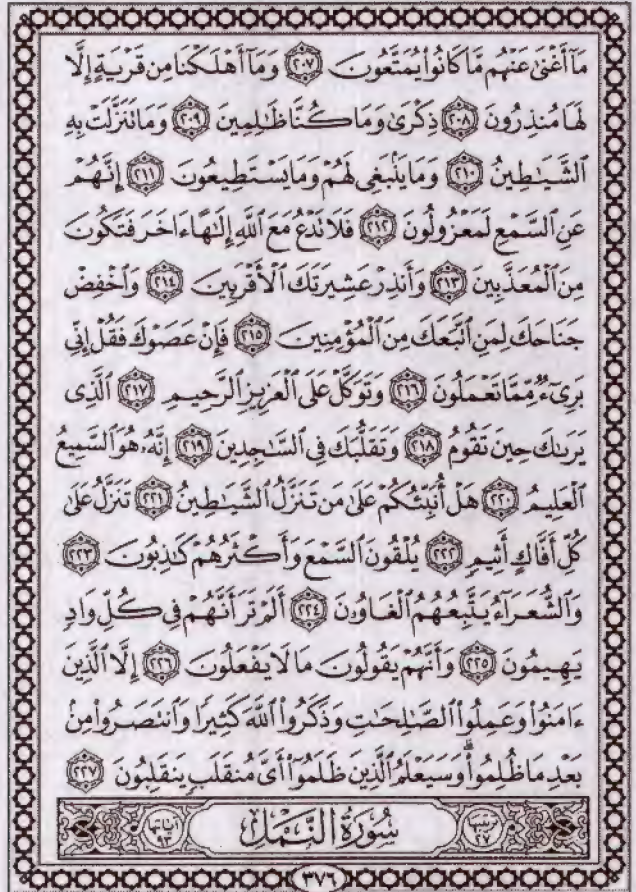 مَآ أَغۡنَىٰ عَنۡهُم مَّا كَانُواْ يُمَتَّعُونَ ٢٠٧ وَمَآ أَهۡلَكۡنَا مِن قَرۡيَةٍ إِلَّا
لَهَا مُنذِرُونَ ٢٠٨ ذِكۡرَىٰ وَمَا كُنَّا ظَٰلِمِينَ ٢٠٩ وَمَا تَنَزَّلَتۡ بِهِ
ٱلشَّيَٰطِينُ ٢١٠ وَمَا يَنۢبَغِي لَهُمۡ وَمَا يَسۡتَطِيعُونَ ٢١١ إِنَّهُمۡ
عَنِ ٱلسَّمۡعِ لَمَعۡزُولُونَ ٢١٢ فَلَا تَدۡعُ مَعَ ٱللَّهِ إِلَٰهًا ءَاخَرَ فَتَكُونَ
مِنَ ٱلۡمُعَذَّبِينَ ٢١٣ وَأَنذِرۡ عَشِيرَتَكَ ٱلۡأَقۡرَبِينَ ٢١٤ وَٱخۡفِضۡ
جَنَاحَكَ لِمَنِ ٱتَّبَعَكَ مِنَ ٱلۡمُؤۡمِنِينَ ٢١٥ فَإِنۡ عَصَوۡكَ فَقُلۡ إِنِّي
بَرِيٓءٞ مِّمَّا تَعۡمَلُونَ ٢١٦ وَتَوَكَّلۡ عَلَى ٱلۡعَزِيزِ ٱلرَّحِيمِ ٢١٧ ٱلَّذِي
يَرَىٰكَ حِينَ تَقُومُ ٢١٨ وَتَقَلُّبَكَ فِي ٱلسَّٰجِدِينَ ٢١٩ إِنَّهُۥ هُوَ ٱلسَّمِيعُ
ٱلۡعَلِيمُ ٢٢٠ هَلۡ أُنَبِّئُكُمۡ عَلَىٰ مَن تَنَزَّلُ ٱلشَّيَٰطِينُ ٢٢١ تَنَزَّلُ عَلَىٰ
كُلِّ أَفَّاكٍ أَثِيمٖ ٢٢٢ يُلۡقُونَ ٱلسَّمۡعَ وَأَكۡثَرُهُمۡ كَٰذِبُونَ ٢٢٣
وَٱلشُّعَرَآءُ يَتَّبِعُهُمُ ٱلۡغَاوُۥنَ ٢٢٤ أَلَمۡ تَرَ أَنَّهُمۡ فِي كُلِّ وَادٖ
يَهِيمُونَ ٢٢٥ وَأَنَّهُمۡ يَقُولُونَ مَا لَا يَفۡعَلُونَ ٢٢٦ إِلَّا ٱلَّذِينَ
ءَامَنُواْ وَعَمِلُواْ ٱلصَّٰلِحَٰتِ وَذَكَرُواْ ٱللَّهَ كَثِيرٗا وَٱنتَصَرُواْ مِنۢ
بَعۡدِ مَا ظُلِمُواْۗ وَسَيَعۡلَمُ ٱلَّذِينَ ظَلَمُوٓاْ أَيَّ مُنقَلَبٖ يَنقَلِبُونَ ٢٢٧
ترتيبها ٢٧ سُورَةُ النَّمْلِ آياتها ٩٣
٣٧٦